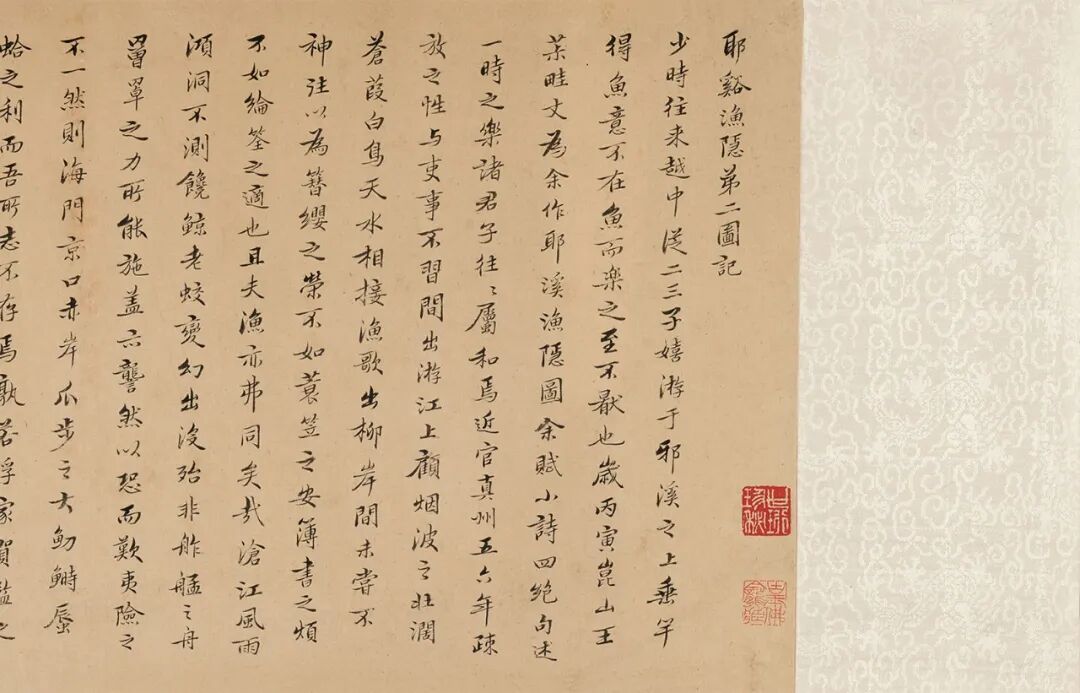 耶谿漁隱第二圖記
少時往来越中從二三子嬉游于耶溪之上垂竿
得魚意不在魚而樂之至不厭也歲丙寅崑山王
叔畦丈為余作耶溪漁隱圖余賦小詩四絶句述
一時之樂諸君子往〻屬和焉近官真州五六年疎
放之性与吏事不習間出游江上顧烟波之壮濶
蒼葭白鳥天水相接漁歌出柳岸間未嘗不
神往以為簪纓之榮不如蓑笠之安簿書之煩
不如綸筌之適也且夫漁亦弗同矣哉滄江風雨
澒洞不測饞鯨老蛟變幻出沒殆非舴艋之舟
罾罩之力所能施盖亦讋然以恐而歎夷險之
不一然則海門京口赤岸瓜步之大魛鰣蜃
蛤之利而吾所志不存焉孰若浮家賀監之